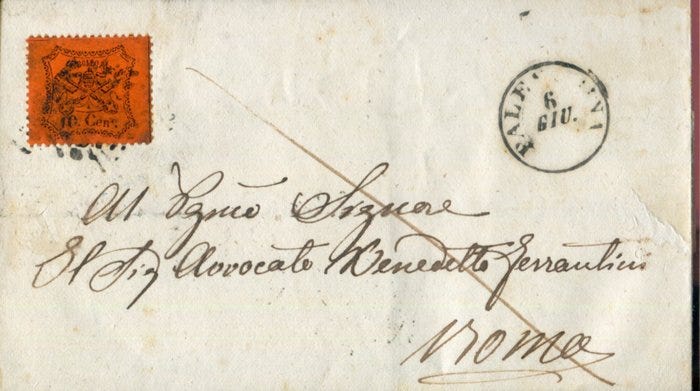 10 Cent.
PALESTRINA
6
GIU.
Al
Signore
El Sig Avvocato Benedetto Ferrantini
Roma